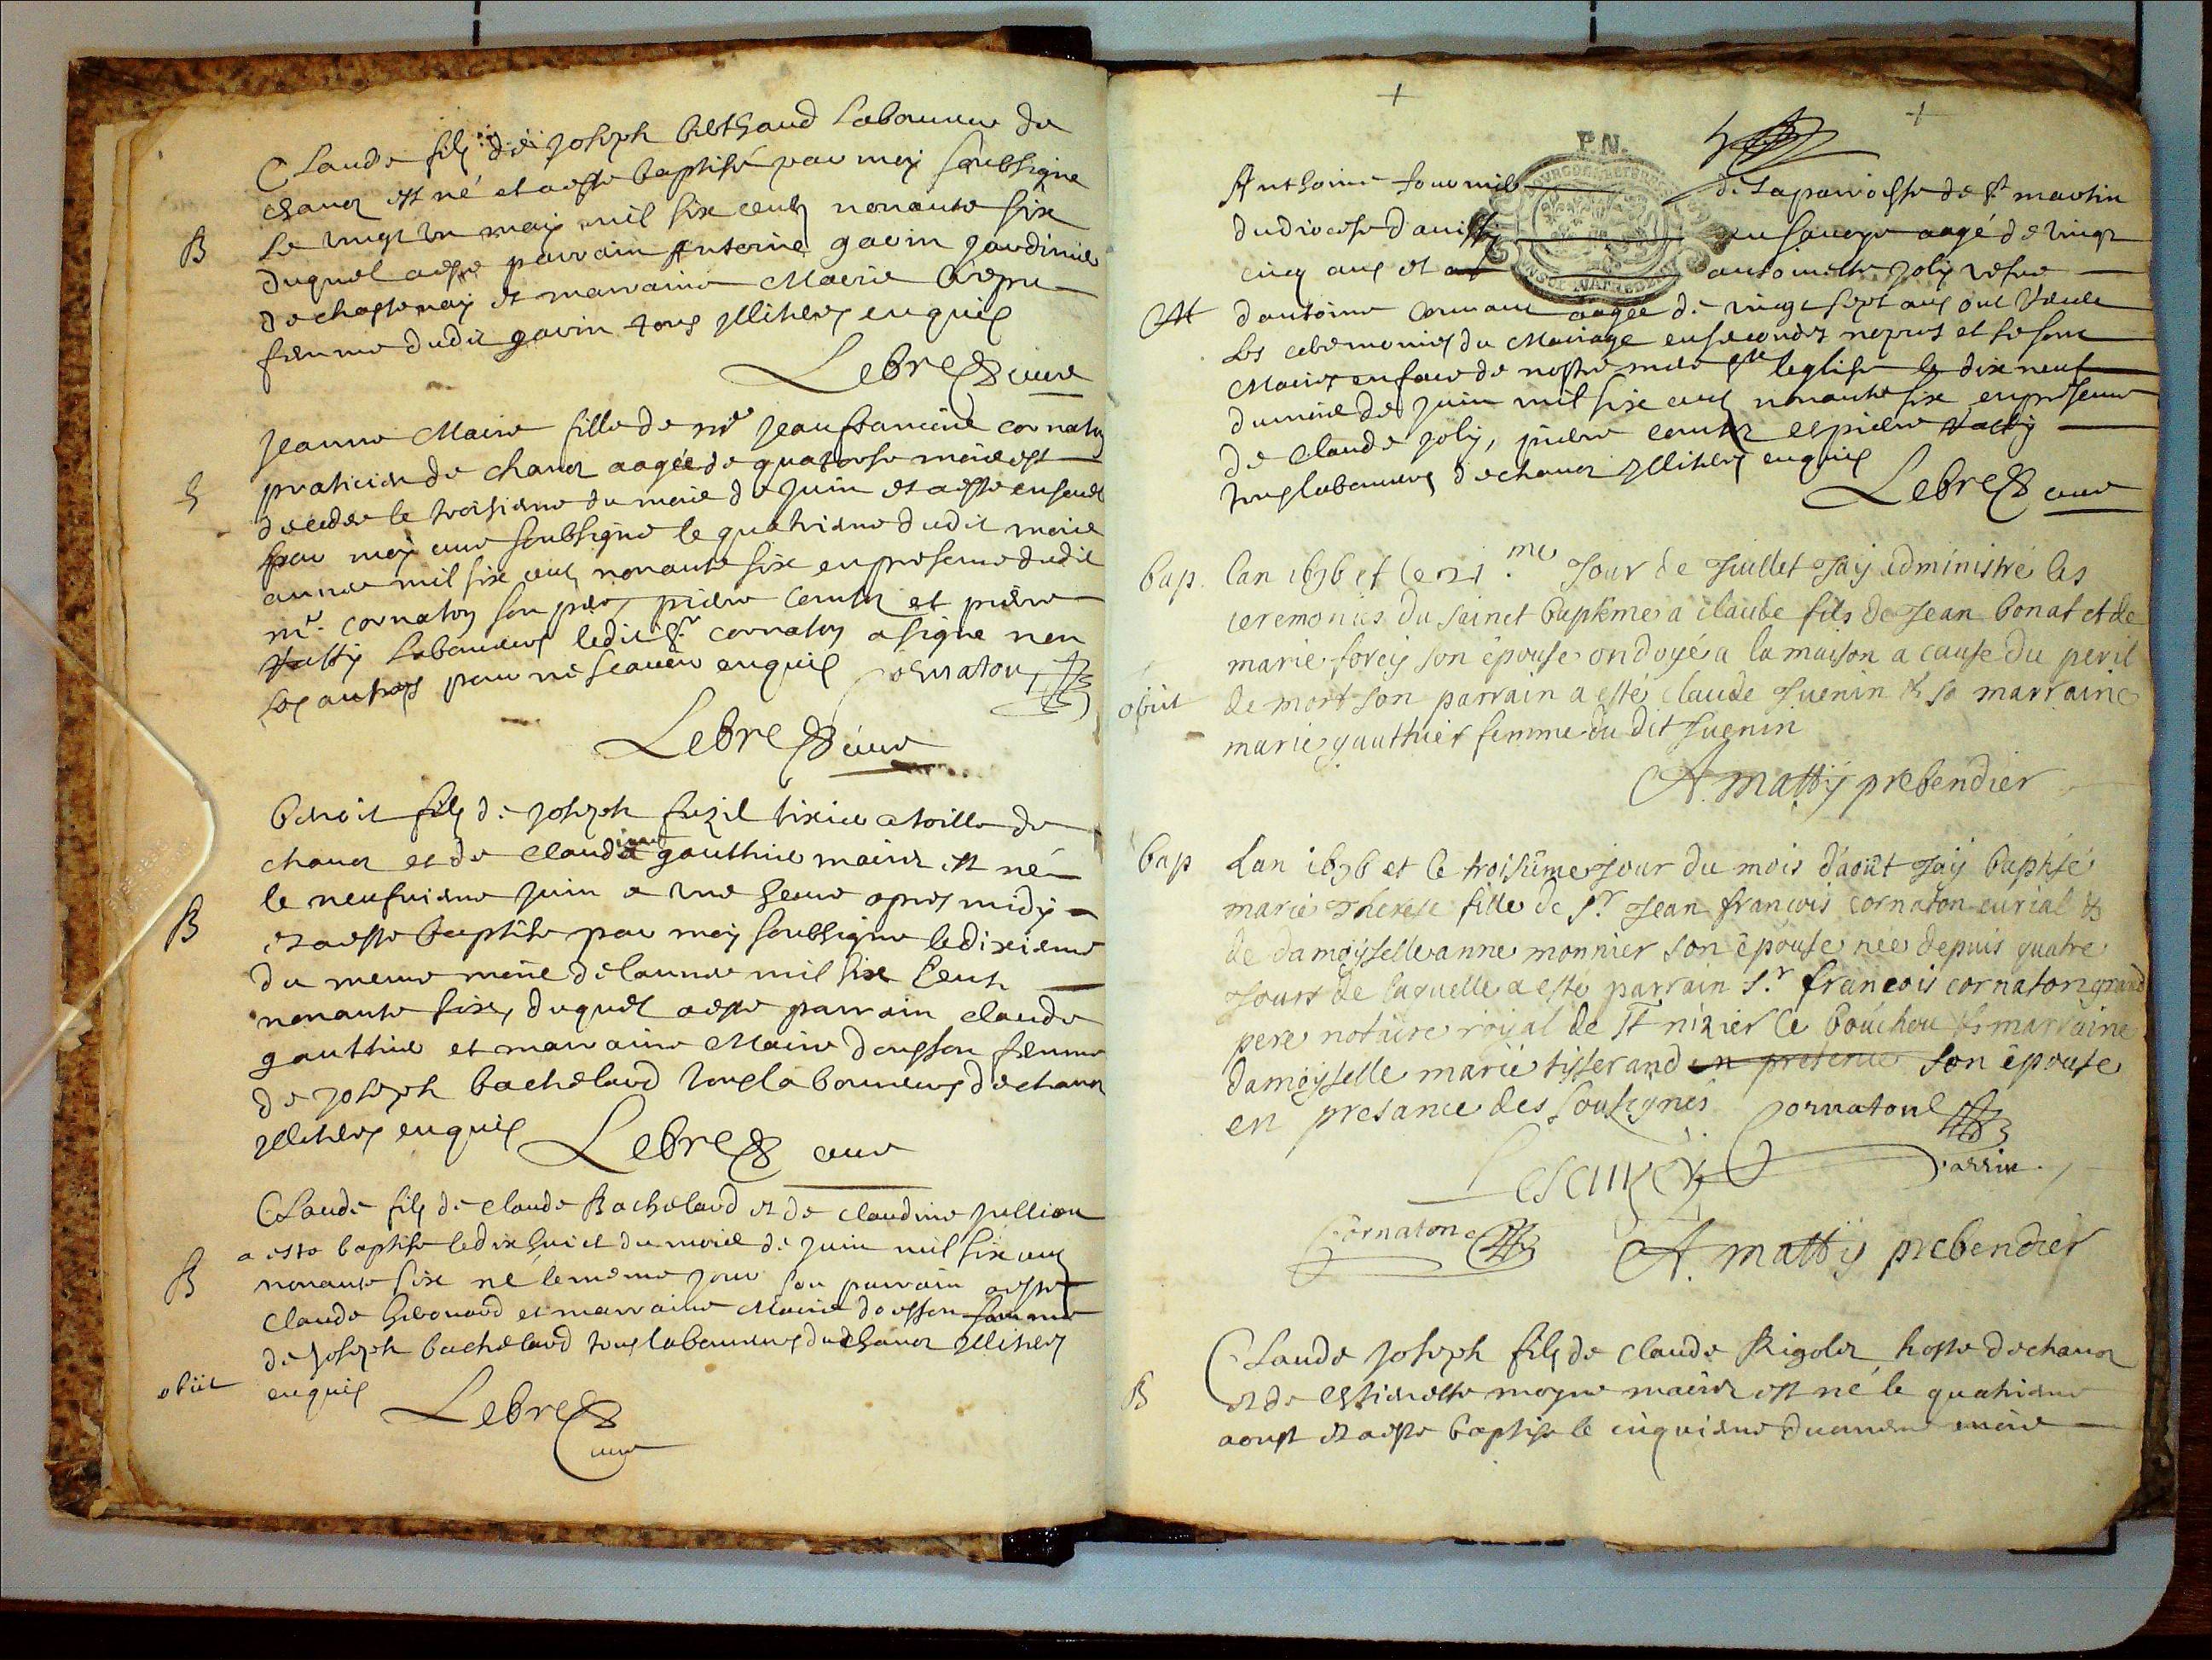 Claude fils de Joseph berthaud laboureur de
chanoz est né et a esté baptisé par moy soubsigne
B
le vingt un may mil six cents nonante six
duquel a esté parrain Antoine gavin jardinier
de chastenay et marraine Marie
femme dudit gavin tous illiteres enquis
Lebre curé
Jeanne Marie fille de me Jean francois cornaton
praticien de chanoz aagée de quatorse mois est
S
decedee le troisieme du mois de juin et a esté enseuelie
par moy curé soubsigne le quatrieme dudit mois
annee mil six cents nonante six en presence dudit
mr. cornaton son pere, pierre comte et pierre
vatty laboureurs ledit Sr cornaton a signe non
les autres pour ne scauoir enquis Cornaton
Lebre curé
benoit fils de joseph fuzil tixier a toille de
chanoz et de Claudine gauthier mariez est né
le neufuieme juin a une heure apres midy
B
et a esté baptise par moy soubsigne le dixieme
du meme mois de lannee mil six cent
nonante six, duquel a esté parrain claude
gauthier et marraine Marie donsson femme
de joseph bachelard tous laboureurs de chanoz
illiteres enquis Lebre curé
Claude fils de claude Bachelard et de claudine jullion
a esté baptise le dix huict du mois de juin mil six cents
B
nonante six né le meme jour son parrain a esté
claude hebouard et marraine Marie donsson femme
de joseph bachelard tous laboureurs du chanoz illiteres
obiit
enquis Lebre
curé
P.N.
Anthoine fournil de la parroisse de St martin
du diocese dannissy en sauoye aagé de vingt
cinq ans et antoinette joly vefue
M
dantoine aagée de vingt sept ans ont receu
les ceremonies du Mariage en secondes nopces et se sont
Mariez en face de nostre mere ste leglise le dix neuf
du mois de juin mil six cents nonante six en presence
de claude joly, pierre comte et pierre vatty
tous laboureurs de chanoz illiteres enquis
Lebre curé
bap. lan 1696 et le 21.me Jour de Juillet Jay administré les
ceremonies du sainct baptême a claude fils de Jean bonat et de
marie forey son épouse ondoyé a la maison a cause du peril
obiit de mort son parrain a esté claude Juenin & sa marraine
marie gauthier femme du dit Juenin
A. mattÿ prebendier
bap Lan 1696 et le troisiême Jour du mois d'août Jaÿ baptisé
marie Therese fille de sr. Jean francois cornaton curial &
de damoÿselle anne monnier son épouse née depuis quatre
Jours de laquelle a esté parrain s.r francois cornaton grand
pere notaire roÿal de St nizier le boúchou & marraine
damoÿselle marie tisserand en presence son épouse
en presance des sousignés Cornaton
parrin.
Cornaton A. mattÿ prebendier
Claude joseph fils de claude Rigolez hoste de chanoz
B
et de estiennette moyne mariez est né le quatrieme
aoust et a esté baptise le cinquieme du meme mois